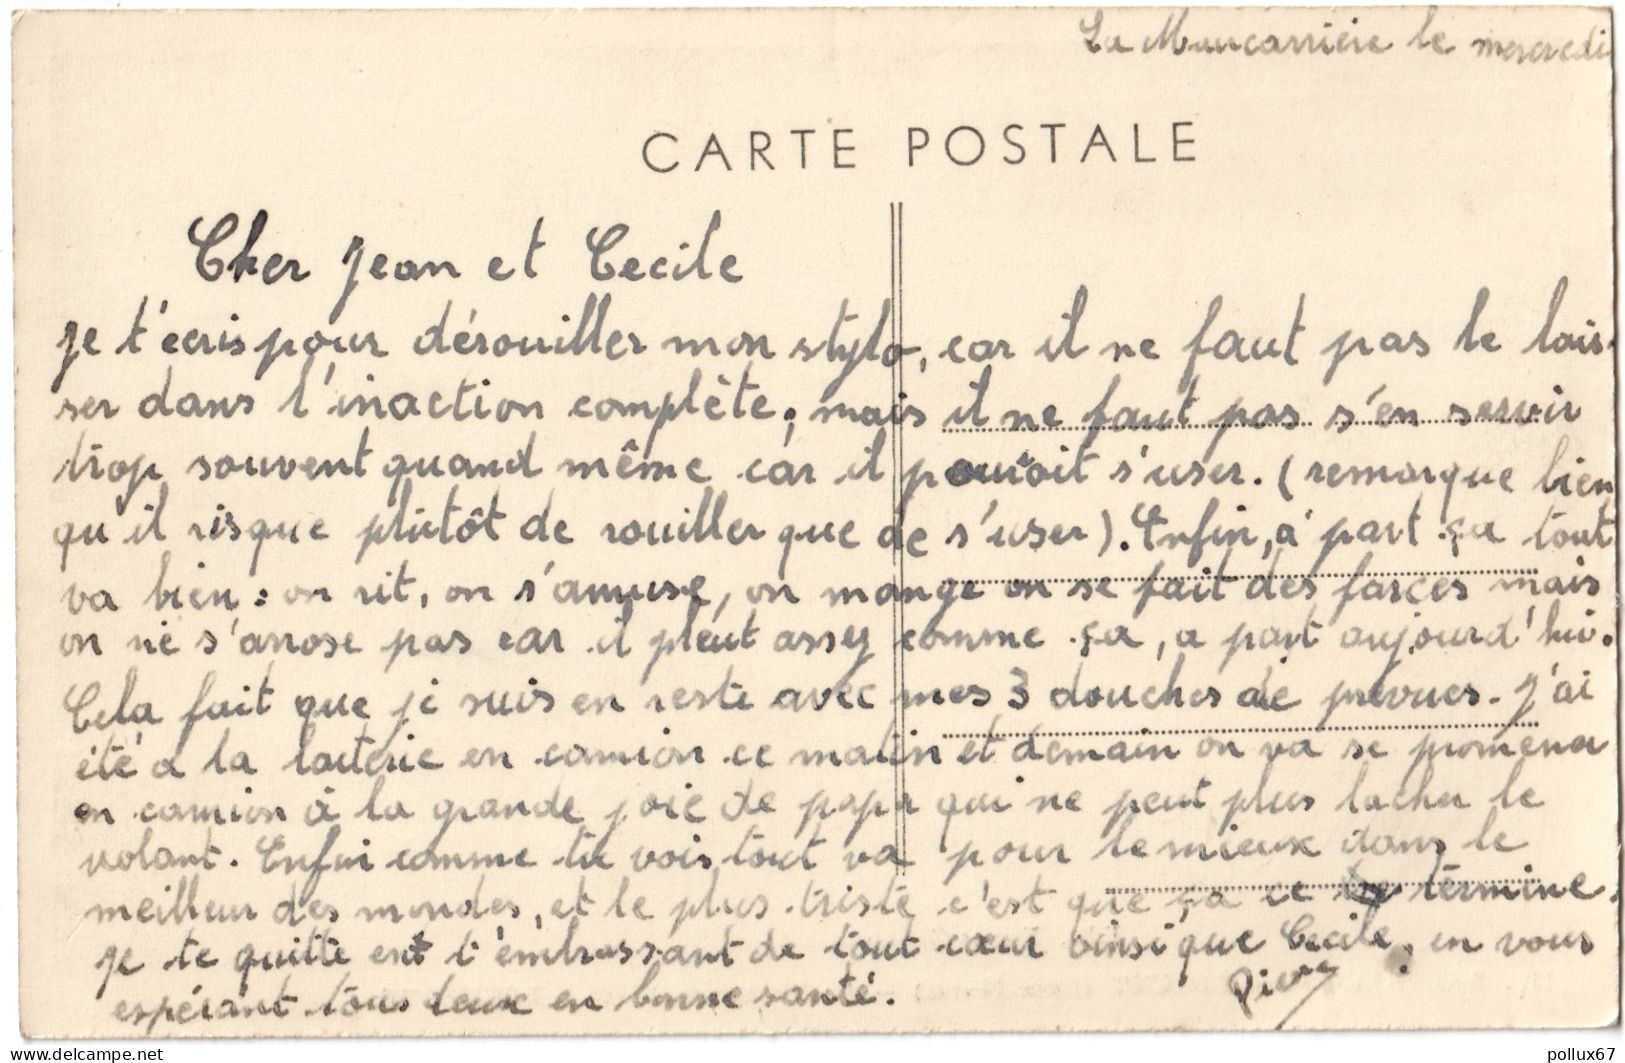 La Maucarrière le mercredi
CARTE POSTALE
Cher Jean et Cecile
je t'écris pour dérouiller mon stylo, car il ne faut pas le lais-
ser dans l'inaction complète, mais il ne faut pas s'en servir
trop souvent quand même car il pouroit s'user. (remarque bien
qu'il risque plutôt de rouiller que de s'user). Enfin, à part ça tout
va bien : on rit, on s'amuse, on mange on se fait des farces mais
on ne s'arose pas car il pleut assez comme ça, a part aujourd'hui.
Cela fait que je suis en reste avec mes 3 douches de prevues. J'ai
été a la laiterie en camion ce matin et demain on va se promener
en camion à la grande joie de papa qui ne peut plus lacher le
volant. Enfin comme tu vois tout va pour le mieux dans le
meilleur des mondes, et le plus triste c'est que ça ce termine.
je te quitte en t'embrassant de tout cœur ainsi que Cecile, en vous
espérant tous deux en bonne santé.
delcampe.net
pollux67